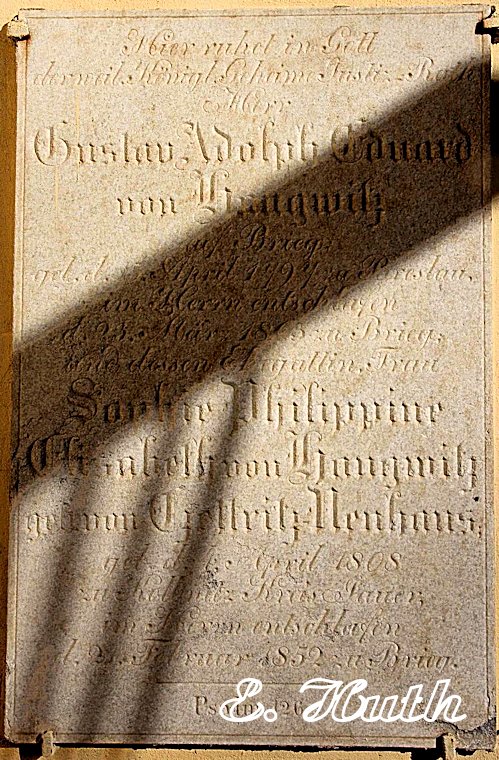 Hier ruhet in Gott
der weil. Königl. Geheime Justiz-Rath
Herr
Gustav Adolph Eduard
von Haugwitz
auf Brieg,
geb. d. April 1797 z. Breslau,
im Herrn entschlafen
d. 23. März z. Brieg;
und dessen Ehegattin, Frau
Sophie Philippine
Elisabeth von Haugwitz
geb. von Czettritz-Neuhaus,
geb. d. April 1808
zu Kreis Jauer,
im Herrn entschlafen
d. Februar 1852 z. Brieg.
Psalm 126
E. Huth